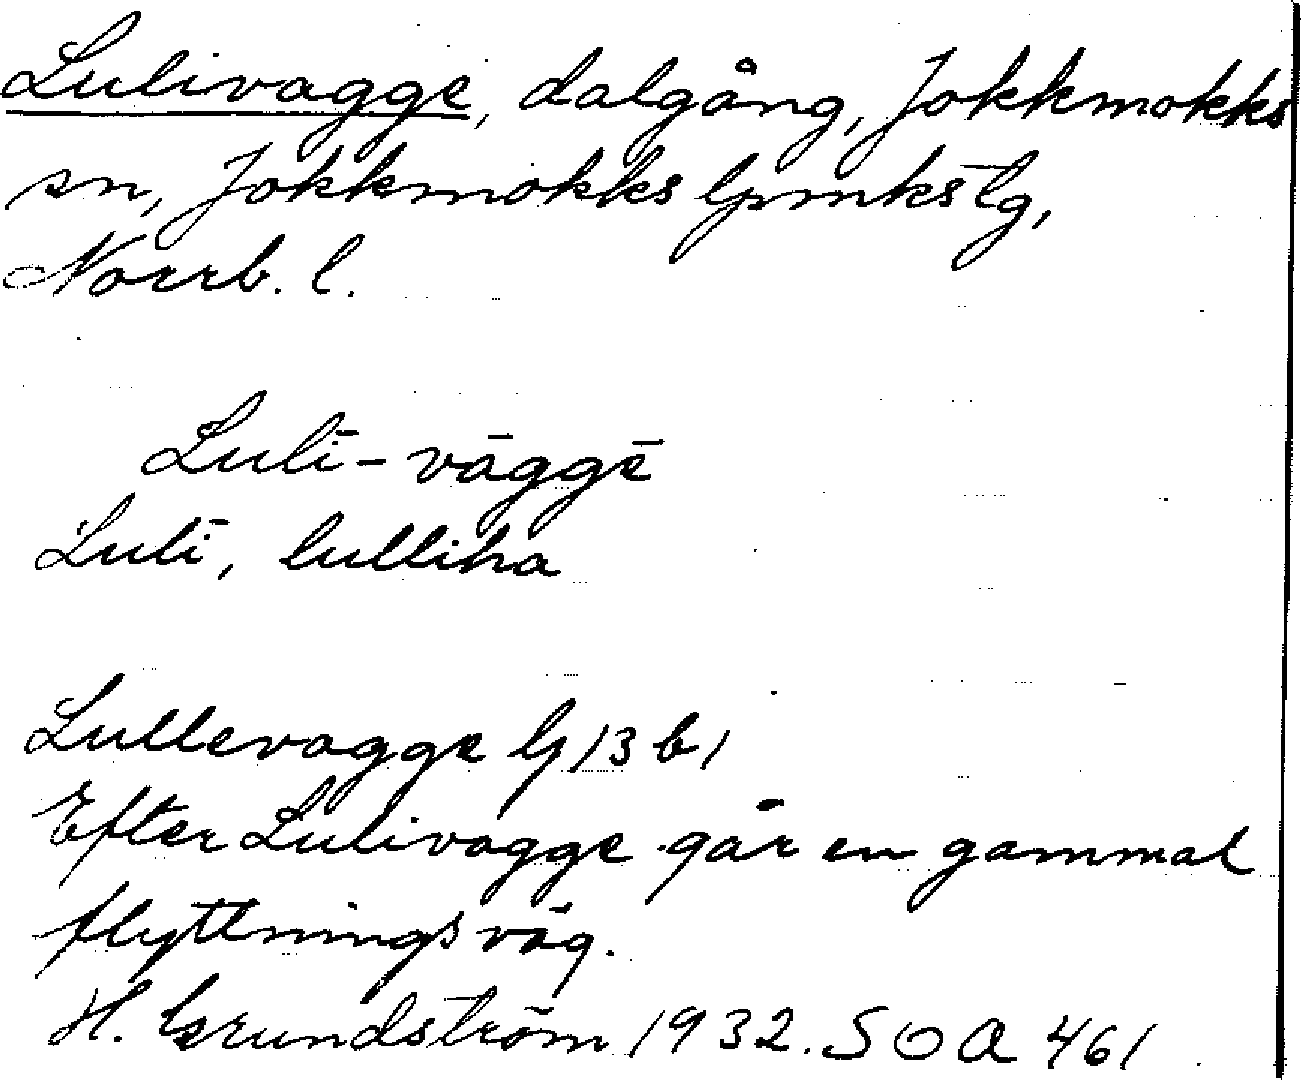 Lulivagge, dalgång, Jokkmokks
sn, Jokkmokks lpmkstg,
Norrb. l.
Lulī-vāggē
Lulī, lulliha
Lullevagge lj 13 b 1
Efter Lulivagge går en gammal
flyttningsväg.
H. Grundström 1932. SOA 461